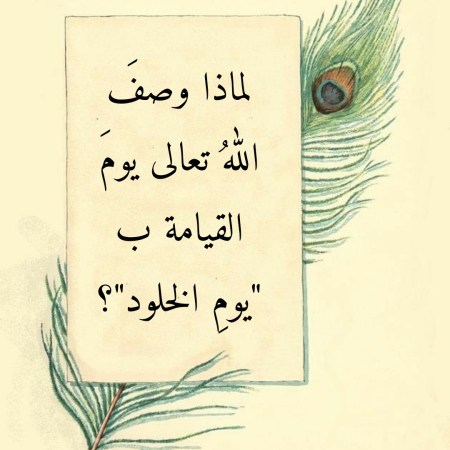 لماذا وصفَ
اللهُ تعالى يومَ
القيامة ب
"يومِ الخلود"؟